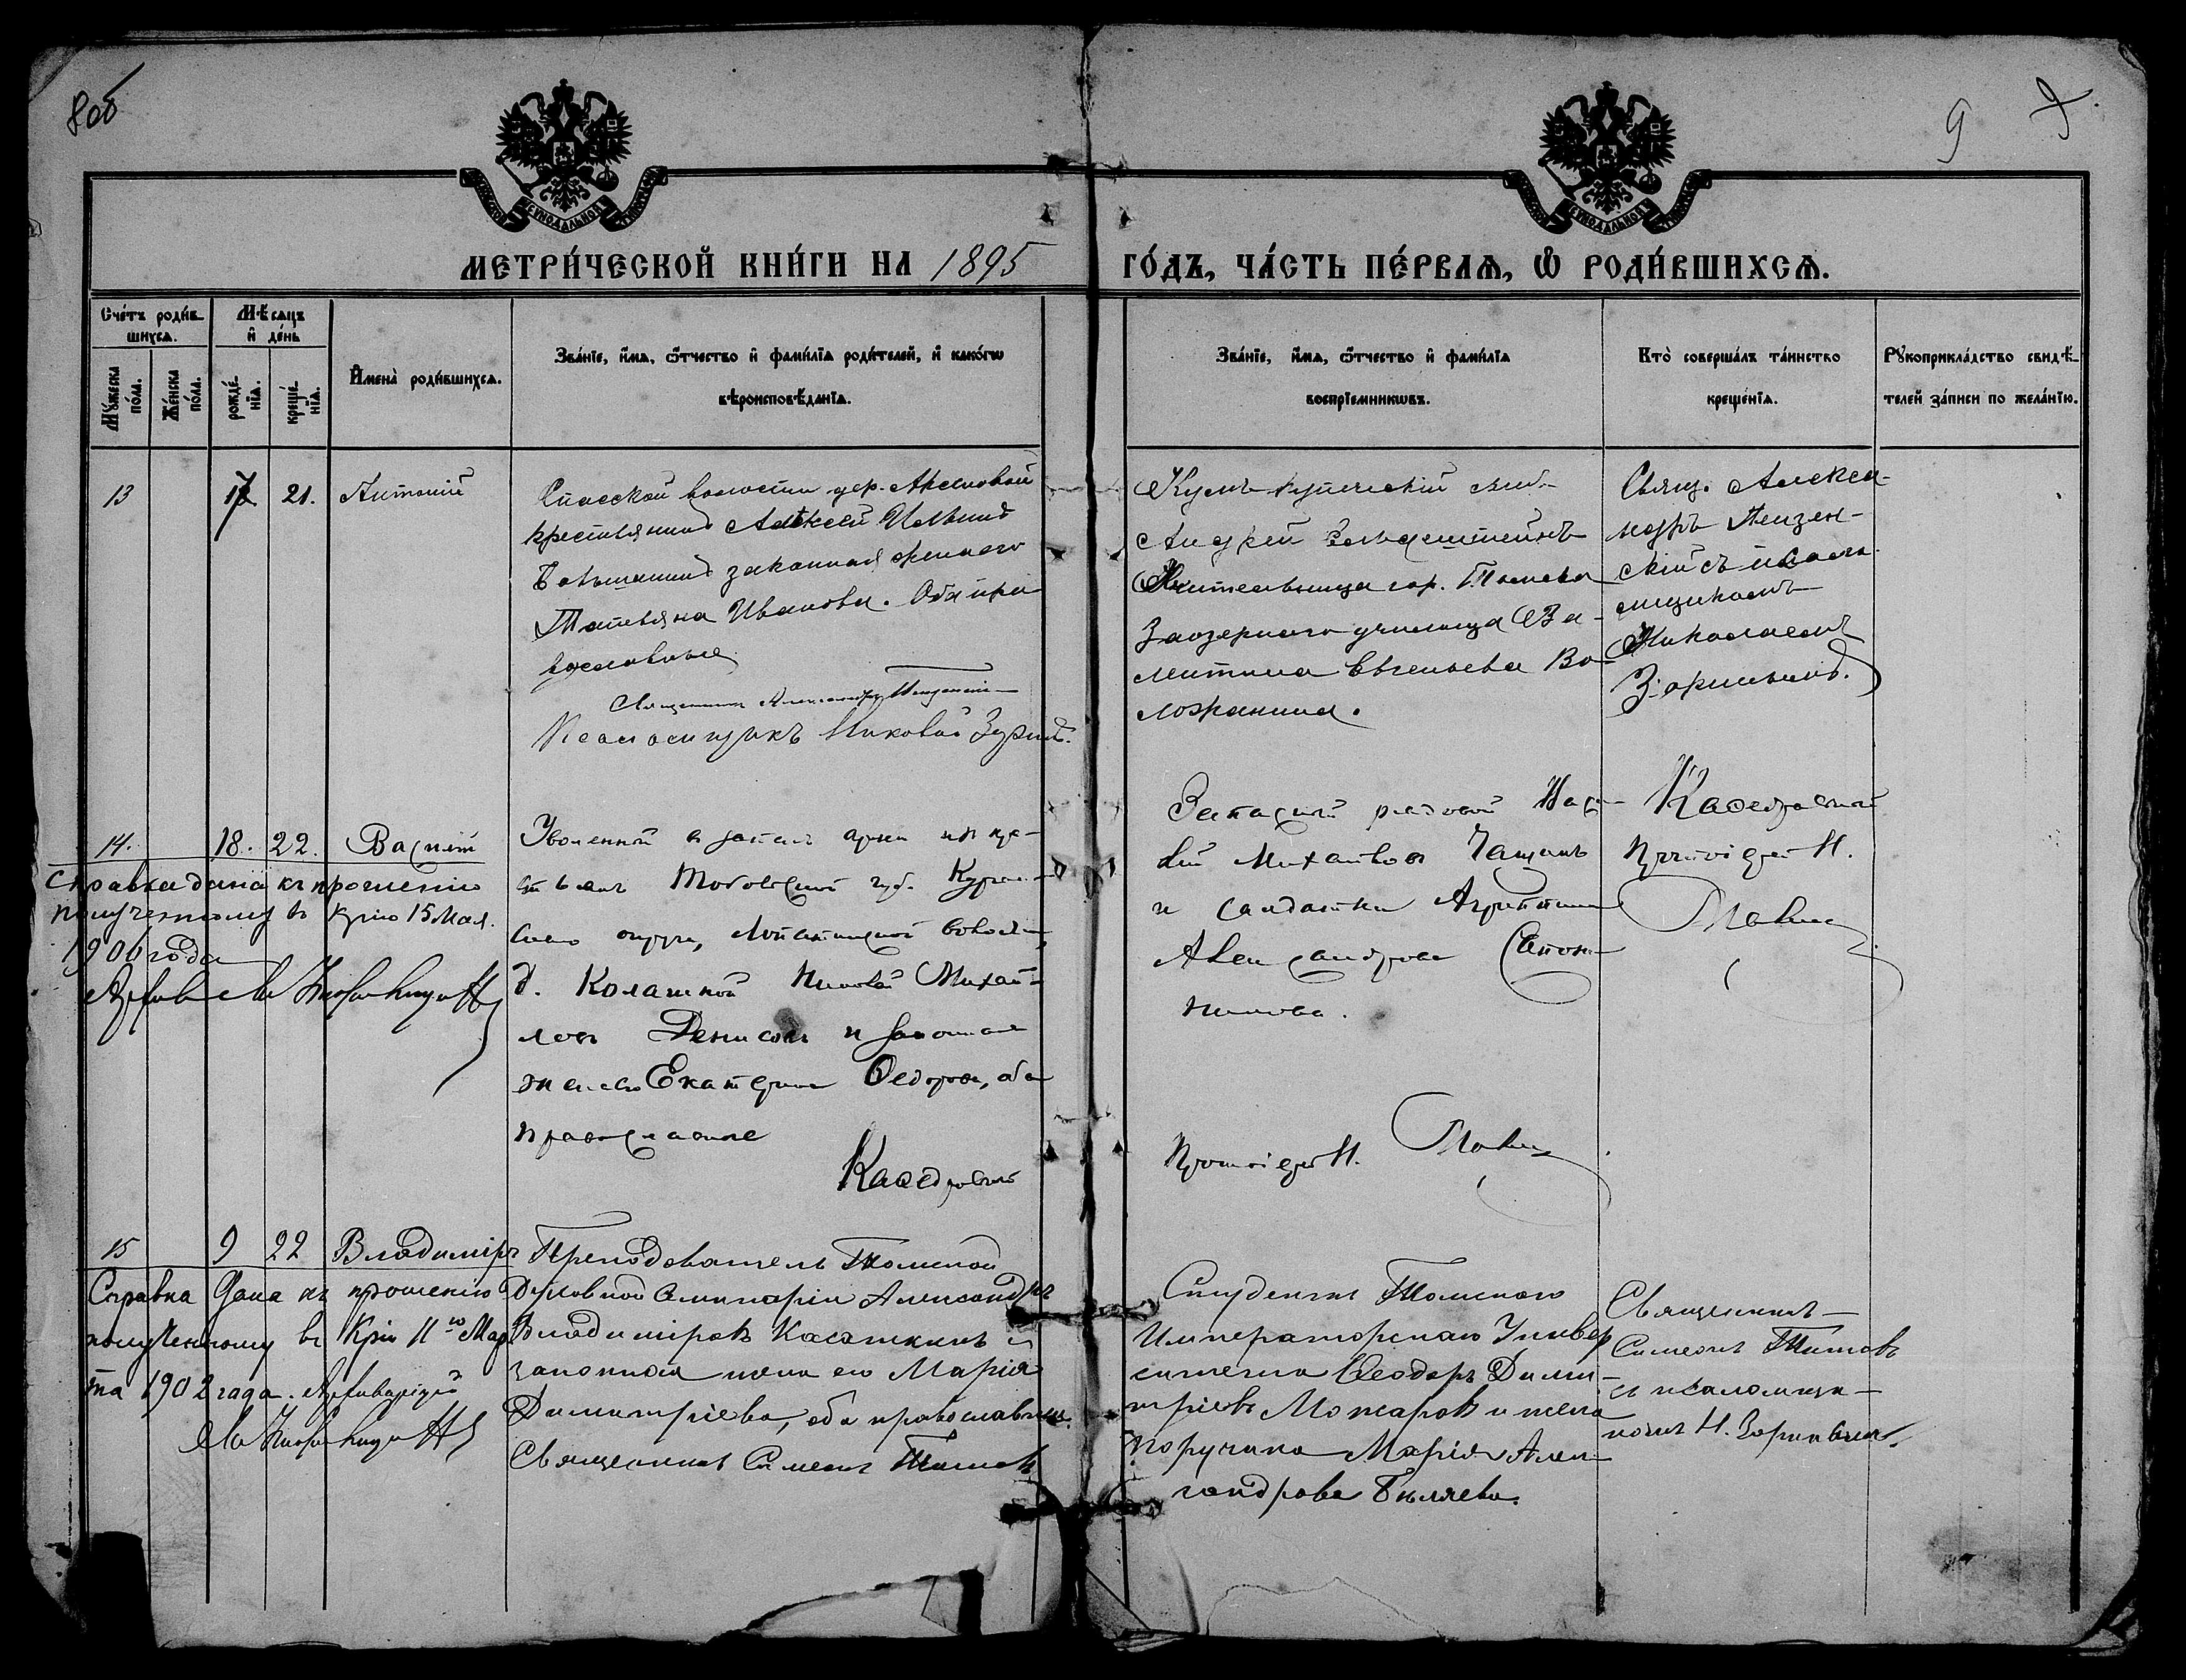 8об
9
9
МЕТРИ́ЧЕСКОЙ КНИ́ГИ НА 1895 ГО́ДЪ, ЧА́СТЬ ПЕ́РВАѦ, Ѽ РОДИ́ВШИХСѦ.
Сче́тъ роди́в-
шихсѧ.
Мѣ́сѧцъ
и҆ де́нь
Мꙋ́жеска
по́ла.
Же́нска
по́ла.
рожде́-
нїѧ.
креще́-
нїѧ.
И҆мена̀ роди́вшихсѧ.
Зва́нїе, и҆́мѧ, ѻ҆́тчество и҆ фами́лїѧ роди́телей, и҆ како́гѡ
вѣроисповѣ́данїѧ.
Зва́нїе, и҆́мѧ, ѻ҆́тчество и҆ фами́лїѧ
воспрїе́мникѡвъ.
Кто̀ соверша́лъ та́инство
креще́нїѧ.
Рꙋкоприкла́дство свидѣ́-
телей за́писи по жела́нїю.
13 17 21. Антоній
Спасской волости дер. Аксеновой
крестьянинъ Алексѣй
законная жена его
Татьяна Иванова. Оба пра-
вославные
Священникъ Александръ Пензенскій
Псаломщикъ Николай
Кумъ купеческій
Андрей
Учительница гор. Томска
Заозернаго училища Ва-
лентина Евгеньева Во-
ложанина.
Свящ. Алексан-
дръ Пензен-
скій съ псало-
мщикомъ
Николаемъ
Зоринымъ.
14. 18. 22. Василій
Справка дана къ прошенію
полученному въ Крію 15 Мая
1906 года
Уволенный в запасъ арміи изъ кре-
стьянъ Тобольской губ. Курган-
скаго округа, Лопатинской волости,
д. Калашной Николай Михай-
ловъ Денисовъ и законная
жена его Екатерина Ѳеодорова, оба
православные
Каѳедральный
Запасный рядовой
Михайловъ
и солдатка Агриппина
Александрова Сапож-
никова.
Протоіерей Н.
Каѳедральный
Протоіерей Н.
15 9 22 Владиміръ
Справка дана къ прошенію
полученному въ Крію 11го Мар
та 1902 года. Архиваріусъ
Преподаватель Томской
Духовной Семинаріи Александръ
Владиміровъ Касаткинъ и
законная жена его Марія
Димитріева, оба православные.
Священникъ Симеонъ Титовъ
Студентъ Томскаго
Императорскаго Универ
ситета Ѳеодоръ Дими-
тріевъ Можаровъ и жена
поручика Марія Алек-
сандрова Бѣляева.
Священникъ
Симеонъ Титовъ
съ псаломщи-
комъ Н. Зоринымъ.